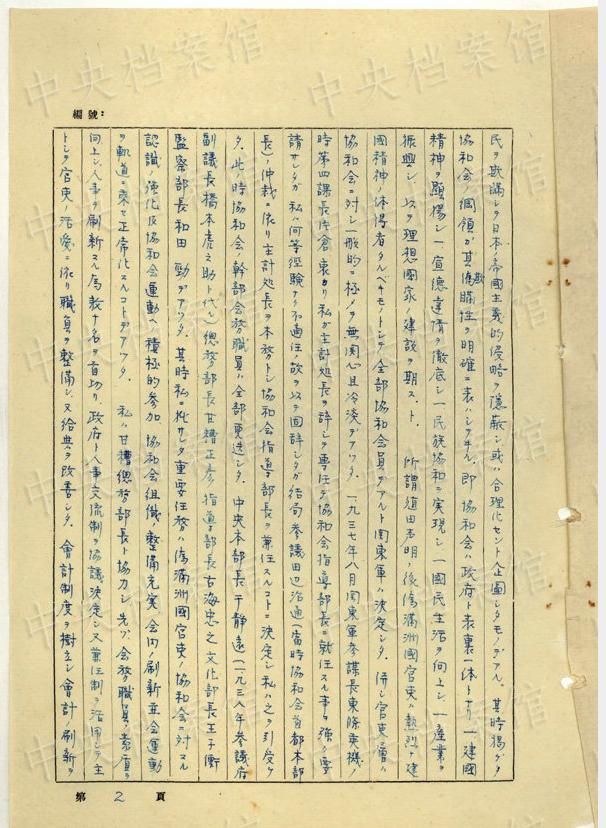 中央档案馆
編號：
民ヲ欺瞞シテ日本ノ帝國主義的侵略ヲ隠蔽シ或ハ合理化セント企圖シタモノデアル。其時掲ゲタ
協和会ノ綱領ガ其ノ欺瞞性ヲ明確ニ表ハシテヰル。即 協和会ハ政府ト表裏一体トナリ 一建國
精神ヲ顕揚シ 一宣徳達情ヲ徹底シ 一民族協和ヲ実現シ 一國民生活ヲ向上シ 一産業ヲ
振興シ 以テ理想國家ノ建設ヲ期スト。 所謂植田声明ノ後偽満洲國官吏ハ熱烈ナ建
國精神ノ体得者タルベキモノトシテ全部協和会員デアルト関東軍ハ決定シタ。併シ官吏層ハ
協和会ニ対シ一般的ニ極メテ無関心且冷淡デアツタ。一九三七年八月関東軍参謀長東條英機ノ
時第四課長片倉衷カラ私ガ主計処長ヲ辞シテ専任デ協和会指導部長ニ就任スル事ヲ強ク要
請サレタガ私ハ何等経験ナク不適任ノ故ヲ以テ固辞シタガ結局参議田辺治通（当時協和会首都本部
長）ノ仲裁ニ依リ主計処長ヲ本務トシ協和会指導部長ヲ兼任スルコトニ決定シ私ハ之ヲ引受ケ
タ。此ノ時協和会ノ幹部会務職員ハ全部更迭シタ。中央本部長于静遠（一九三八年参議府
副議長橋本虎之助ト代ル）総務部長甘糟正彦 指導部長古海忠之 文化部長王子衡
監察部長和田 勁デアツタ。其時私ニ托サレタ重要任務ハ偽満洲國官吏ノ協和会ニ対スル
認識ノ強化及協和会運動ヘノ積極的参加 協和会組織ノ整備充実 会内ノ刷新並会運動
ヲ軌道ニ乗セ正常化スルコトデアツタ。 私ハ甘糟総務部長ト協力シ先ヅ会務職員ノ素質ヲ
向上シ人事ヲ刷新スル為数十名ヲ首切リ、政府ト人事交流制ヲ協議決定シ又兼任制ヲ活用シテ主
トシテ官吏ノ活発ニ依リ職員ヲ整備シ又給与ヲ改善シタ。會計制度ヲ樹立シ會計刷新ヲ
第 2 頁